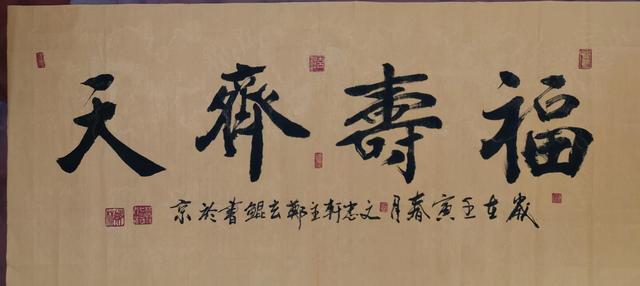 福壽齊天
歲在壬寅春月文忠軒主鄭玄鯤書於京